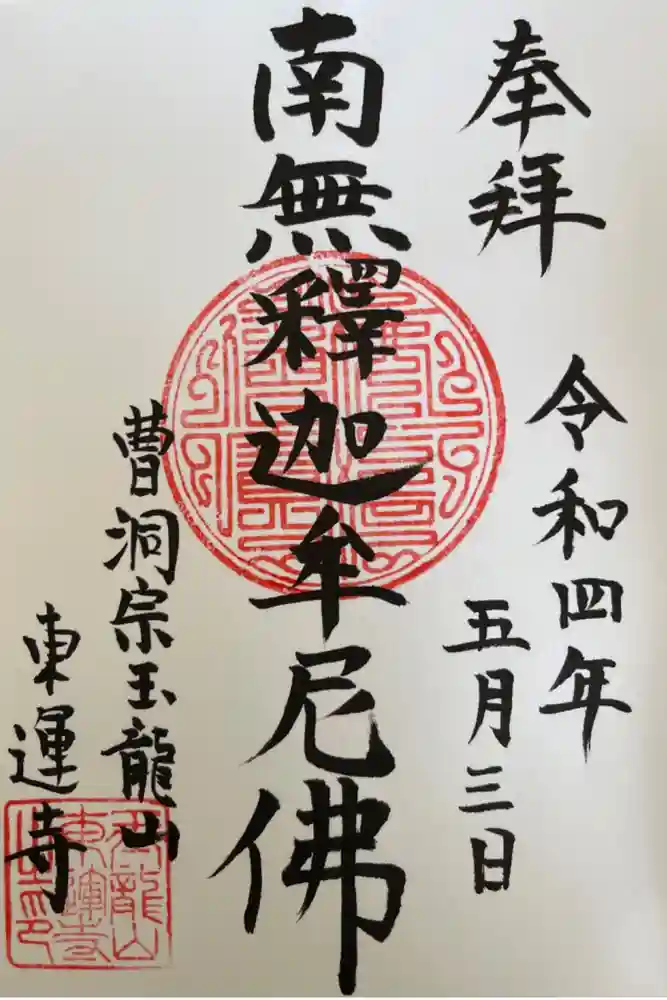 奉拜
令和四年
五月三日
南無釋迦牟尼佛
曹洞宗玉龍山
東運寺
玉龍山
東運寺
之印